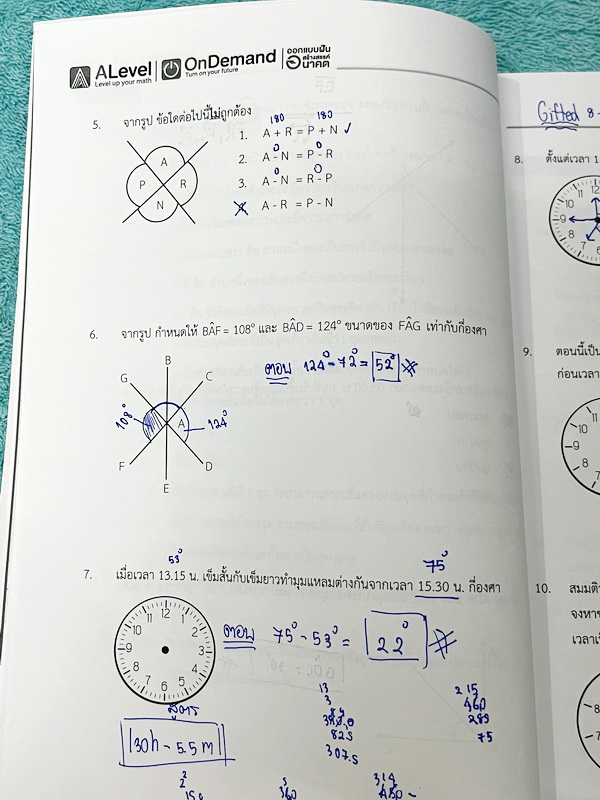 ALevel
Level up your math
OnDemand
Turn on your future
ออกแบบฝัน
สร้างสรรค์
อนาคต
5. จากรูป ข้อใดต่อไปนี้ไม่ถูกต้อง
180 180
1. A + R = P + N ✓
0 0
2. A - N = P - R
0 0
3. A - N = R - P
4. A - R = P - N
A
P R
N
6. จากรูป กำหนดให้ BÂF = 108° และ BÂD = 124° ขนาดของ FÂG เท่ากับกี่องศา
ตอบ 124° - 72° = 52°
B
G C
108° A 124°
F D
E
53° 75°
7. เมื่อเวลา 13.15 น. เข็มสั้นกับเข็มยาวทำมุมแหลมต่างกันจากเวลา 15.30 น. กี่องศา
12 1 2 3 4 5 6 7 8 9 10 11
ตอบ 75° - 53° = 22°
สูตร
|30h - 5.5m|
13
3
82.5
307.5
2 15
75
Gifted 8
8. ตั้งแต่เวลา 1
11 12
10
9
8
7 6
9. ตอนนี้เป็น
ก่อนเวลา
11
10
9
8
7
10. สมมติ
จงหา
เวลาเ
10
9
8